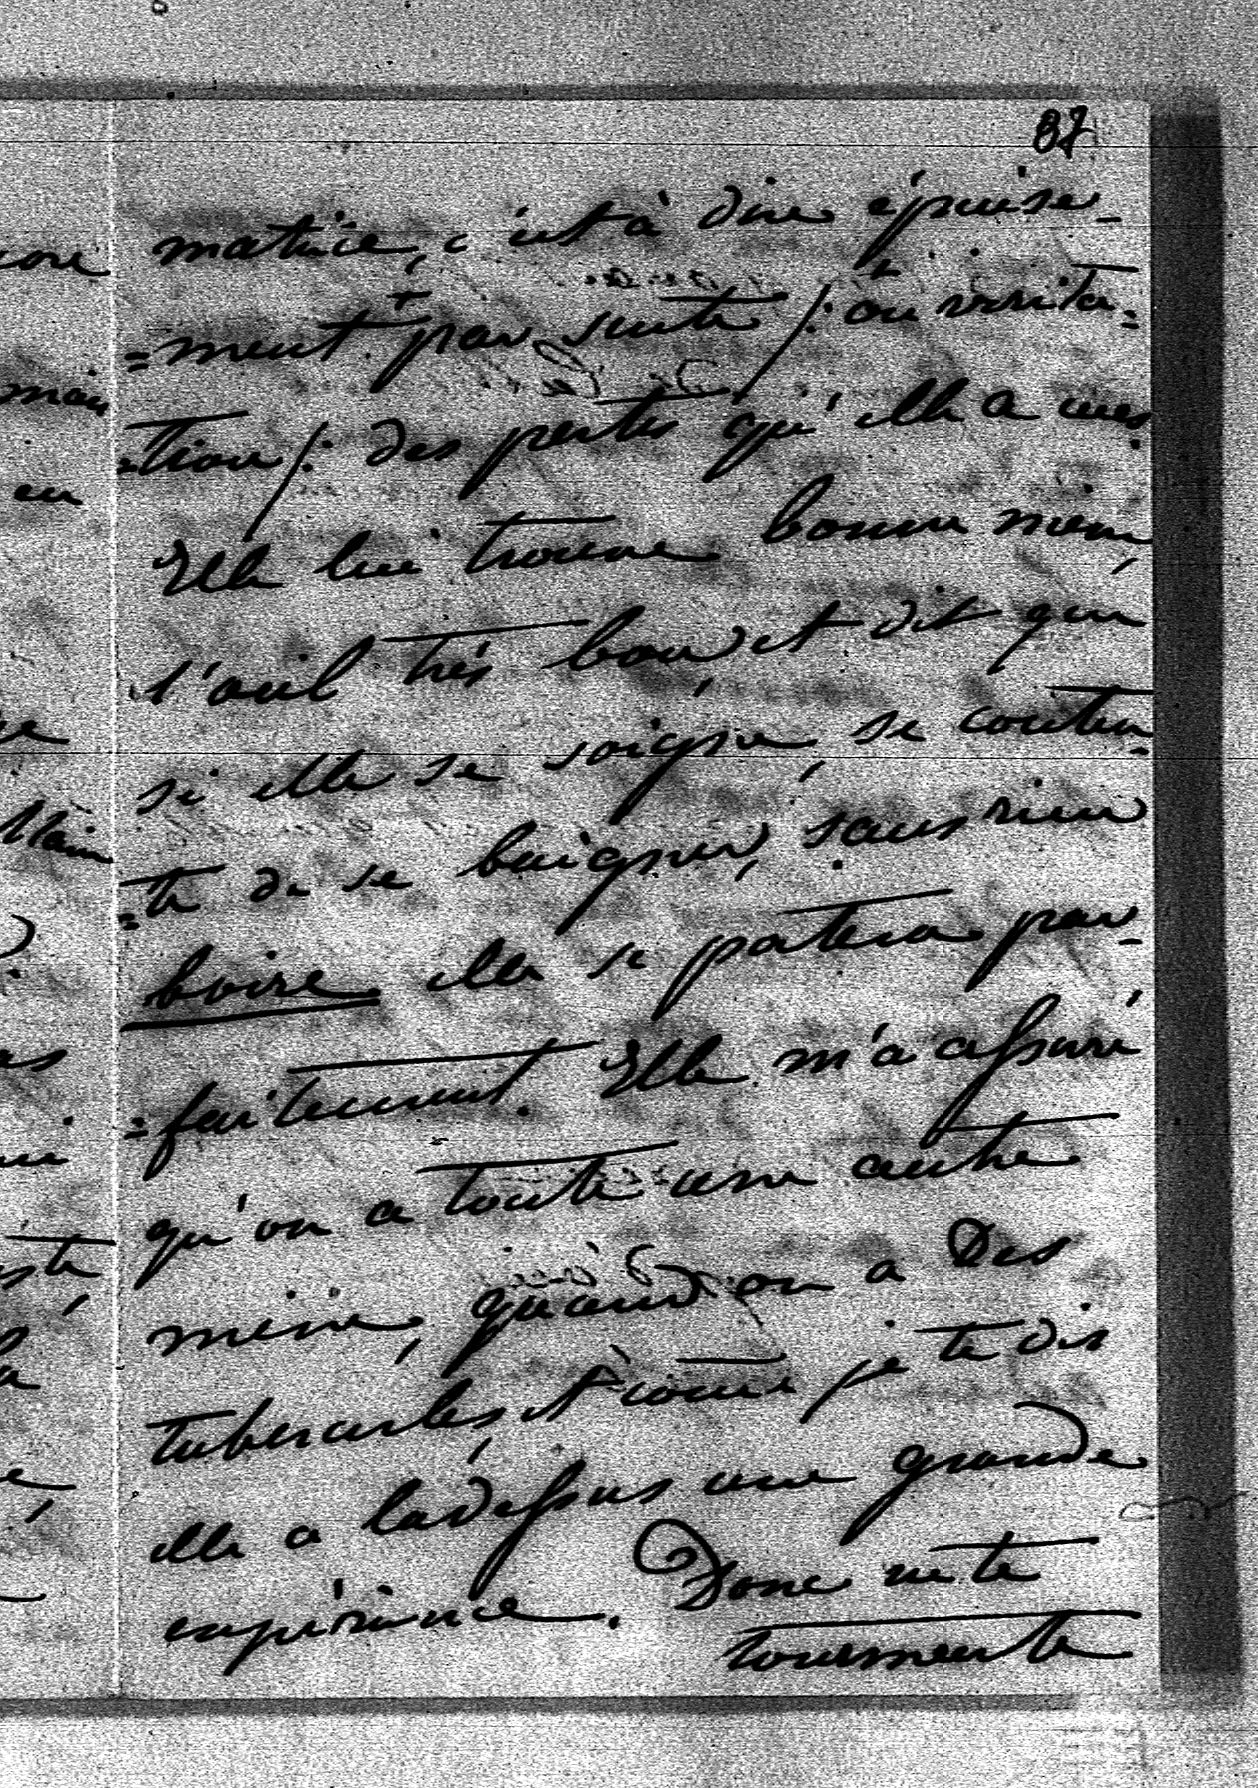 87
matrice, c'est à dire épuise-
=ment par suite /: ou irrita=
=tion /: des pertes qu'elle a eues
Elle lui trouve bonne mine,
l'œil très bon, et dit que
si elle se soigne, se conten=
=te de se baigner, sans rien
boire elle se portera par-
=faitement. Elle m'a assuré
qu'on a toute une autre
mine, quand on a des
tubercules, et comme je te dis
elle a ladessus une grande
expérience. Donc ne te
tourmente